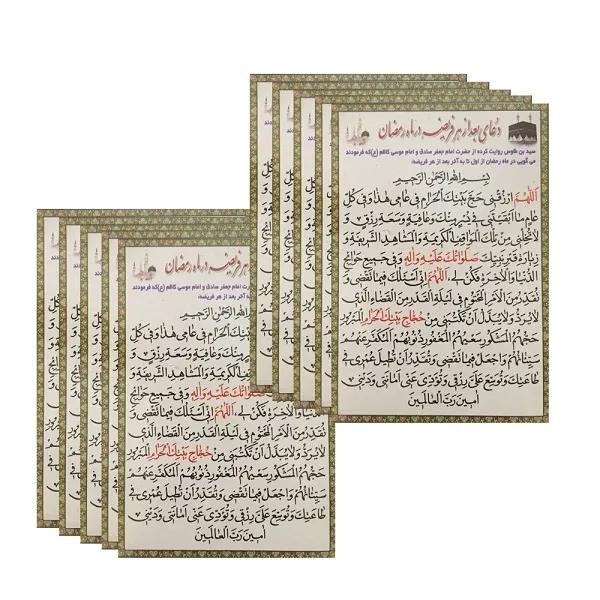 دعای بعد از هر فریضه در ماه رمضان
سید بن طاوس روایت کرده از حضرت امام جعفر صادق و امام موسی کاظم (ع)که فرمودند
می گویی در ماه رمضان از اول تا به آخر بعد از هر فریضه:
بِسْمِ اللهِ الرَّحْمٰنِ الرَّحیمِ
اَللّٰهُمَّ ارْزُقْنی حَجَّ بَیْتِكَ الْحَرامِ فی عامی هٰذا وَ فی كُلِّ
عامٍ ما اَبْقَیْتَنی فی یُسْرٍ مِنْكَ وَ عافِیَةٍ وَ سَعَةِ رِزْقٍ وَ
لا تُخْلِنی مِنْ تِلْكَ الْمَواقِفِ الْكَریمَةِ وَ الْمَشاهِدِ الشَّریفَةِ وَ
زِیارَةِ قَبْرِ نَبِیِّكَ صَلَواتُكَ عَلَیْهِ وَ آلِهِ وَ فی جَمیعِ حَوائِجِ
الدُّنْیا وَ الْآخِرَةِ فَكُنْ لی، اَللّٰهُمَّ اِنّی اَسْئَلُكَ فیما تَقْضی وَ
تُقَدِّرُ مِنَ الْاَمْرِ الْمَحْتُومِ فی لَیْلَةِ الْقَدْرِ مِنَ الْقَضاءِ الَّذی
لا یُرَدُّ وَ لا یُبَدَّلُ اَنْ تَكْتُبَنی مِنْ حُجّاجِ بَیْتِكَ الْحَرامِ الْمَبْرُورِ
حَجُّهُمُ الْمَشْكُورِ سَعْیُهُمُ الْمَغْفُورِ ذُنُوبُهُمُ الْمُكَفَّرِ عَنْهُمْ
سَیِّئاتُهُمْ وَ اجْعَلْ فیما تَقْضی وَ تُقَدِّرُ اَنْ تُطیلَ عُمْری فی
طاعَتِكَ وَ تُوَسِّعَ عَلَیَّ رِزْقی وَ تُؤَدِّیَ عَنّی اَمانَتی وَ دَیْنی
آمینَ رَبَّ الْعالَمینَ
هر فریضه در ماه رمضان
حضرت امام جعفر صادق و امام موسی کاظم (ع)که فرمودند
به آخر بعد از هر فریضه:
الرَّحْمٰنِ الرَّحیمِ
بَیْتِكَ الْحَرامِ فی عامی هٰذا وَ فی كُلِّ
مِنْكَ وَ عافِیَةٍ وَ سَعَةِ رِزْقٍ وَ
الْمَواقِفِ الْكَریمَةِ وَ الْمَشاهِدِ الشَّریفَةِ وَ
صَلَواتُكَ عَلَیْهِ وَ آلِهِ وَ فی جَمیعِ حَوائِجِ
الدُّنْیا وَ الْآخِرَةِ فَكُنْ لی، اَللّٰهُمَّ اِنّی اَسْئَلُكَ فیما تَقْضی وَ
تُقَدِّرُ مِنَ الْاَمْرِ الْمَحْتُومِ فی لَیْلَةِ الْقَدْرِ مِنَ الْقَضاءِ الَّذی
لا یُرَدُّ وَ لا یُبَدَّلُ اَنْ تَكْتُبَنی مِنْ حُجّاجِ بَیْتِكَ الْحَرامِ الْمَبْرُورِ
حَجُّهُمُ الْمَشْكُورِ سَعْیُهُمُ الْمَغْفُورِ ذُنُوبُهُمُ الْمُكَفَّرِ عَنْهُمْ
سَیِّئاتُهُمْ وَ اجْعَلْ فیما تَقْضی وَ تُقَدِّرُ اَنْ تُطیلَ عُمْری فی
طاعَتِكَ وَ تُوَسِّعَ عَلَیَّ رِزْقی وَ تُؤَدِّیَ عَنّی اَمانَتی وَ دَیْنی
آمینَ رَبَّ الْعالَمینَ